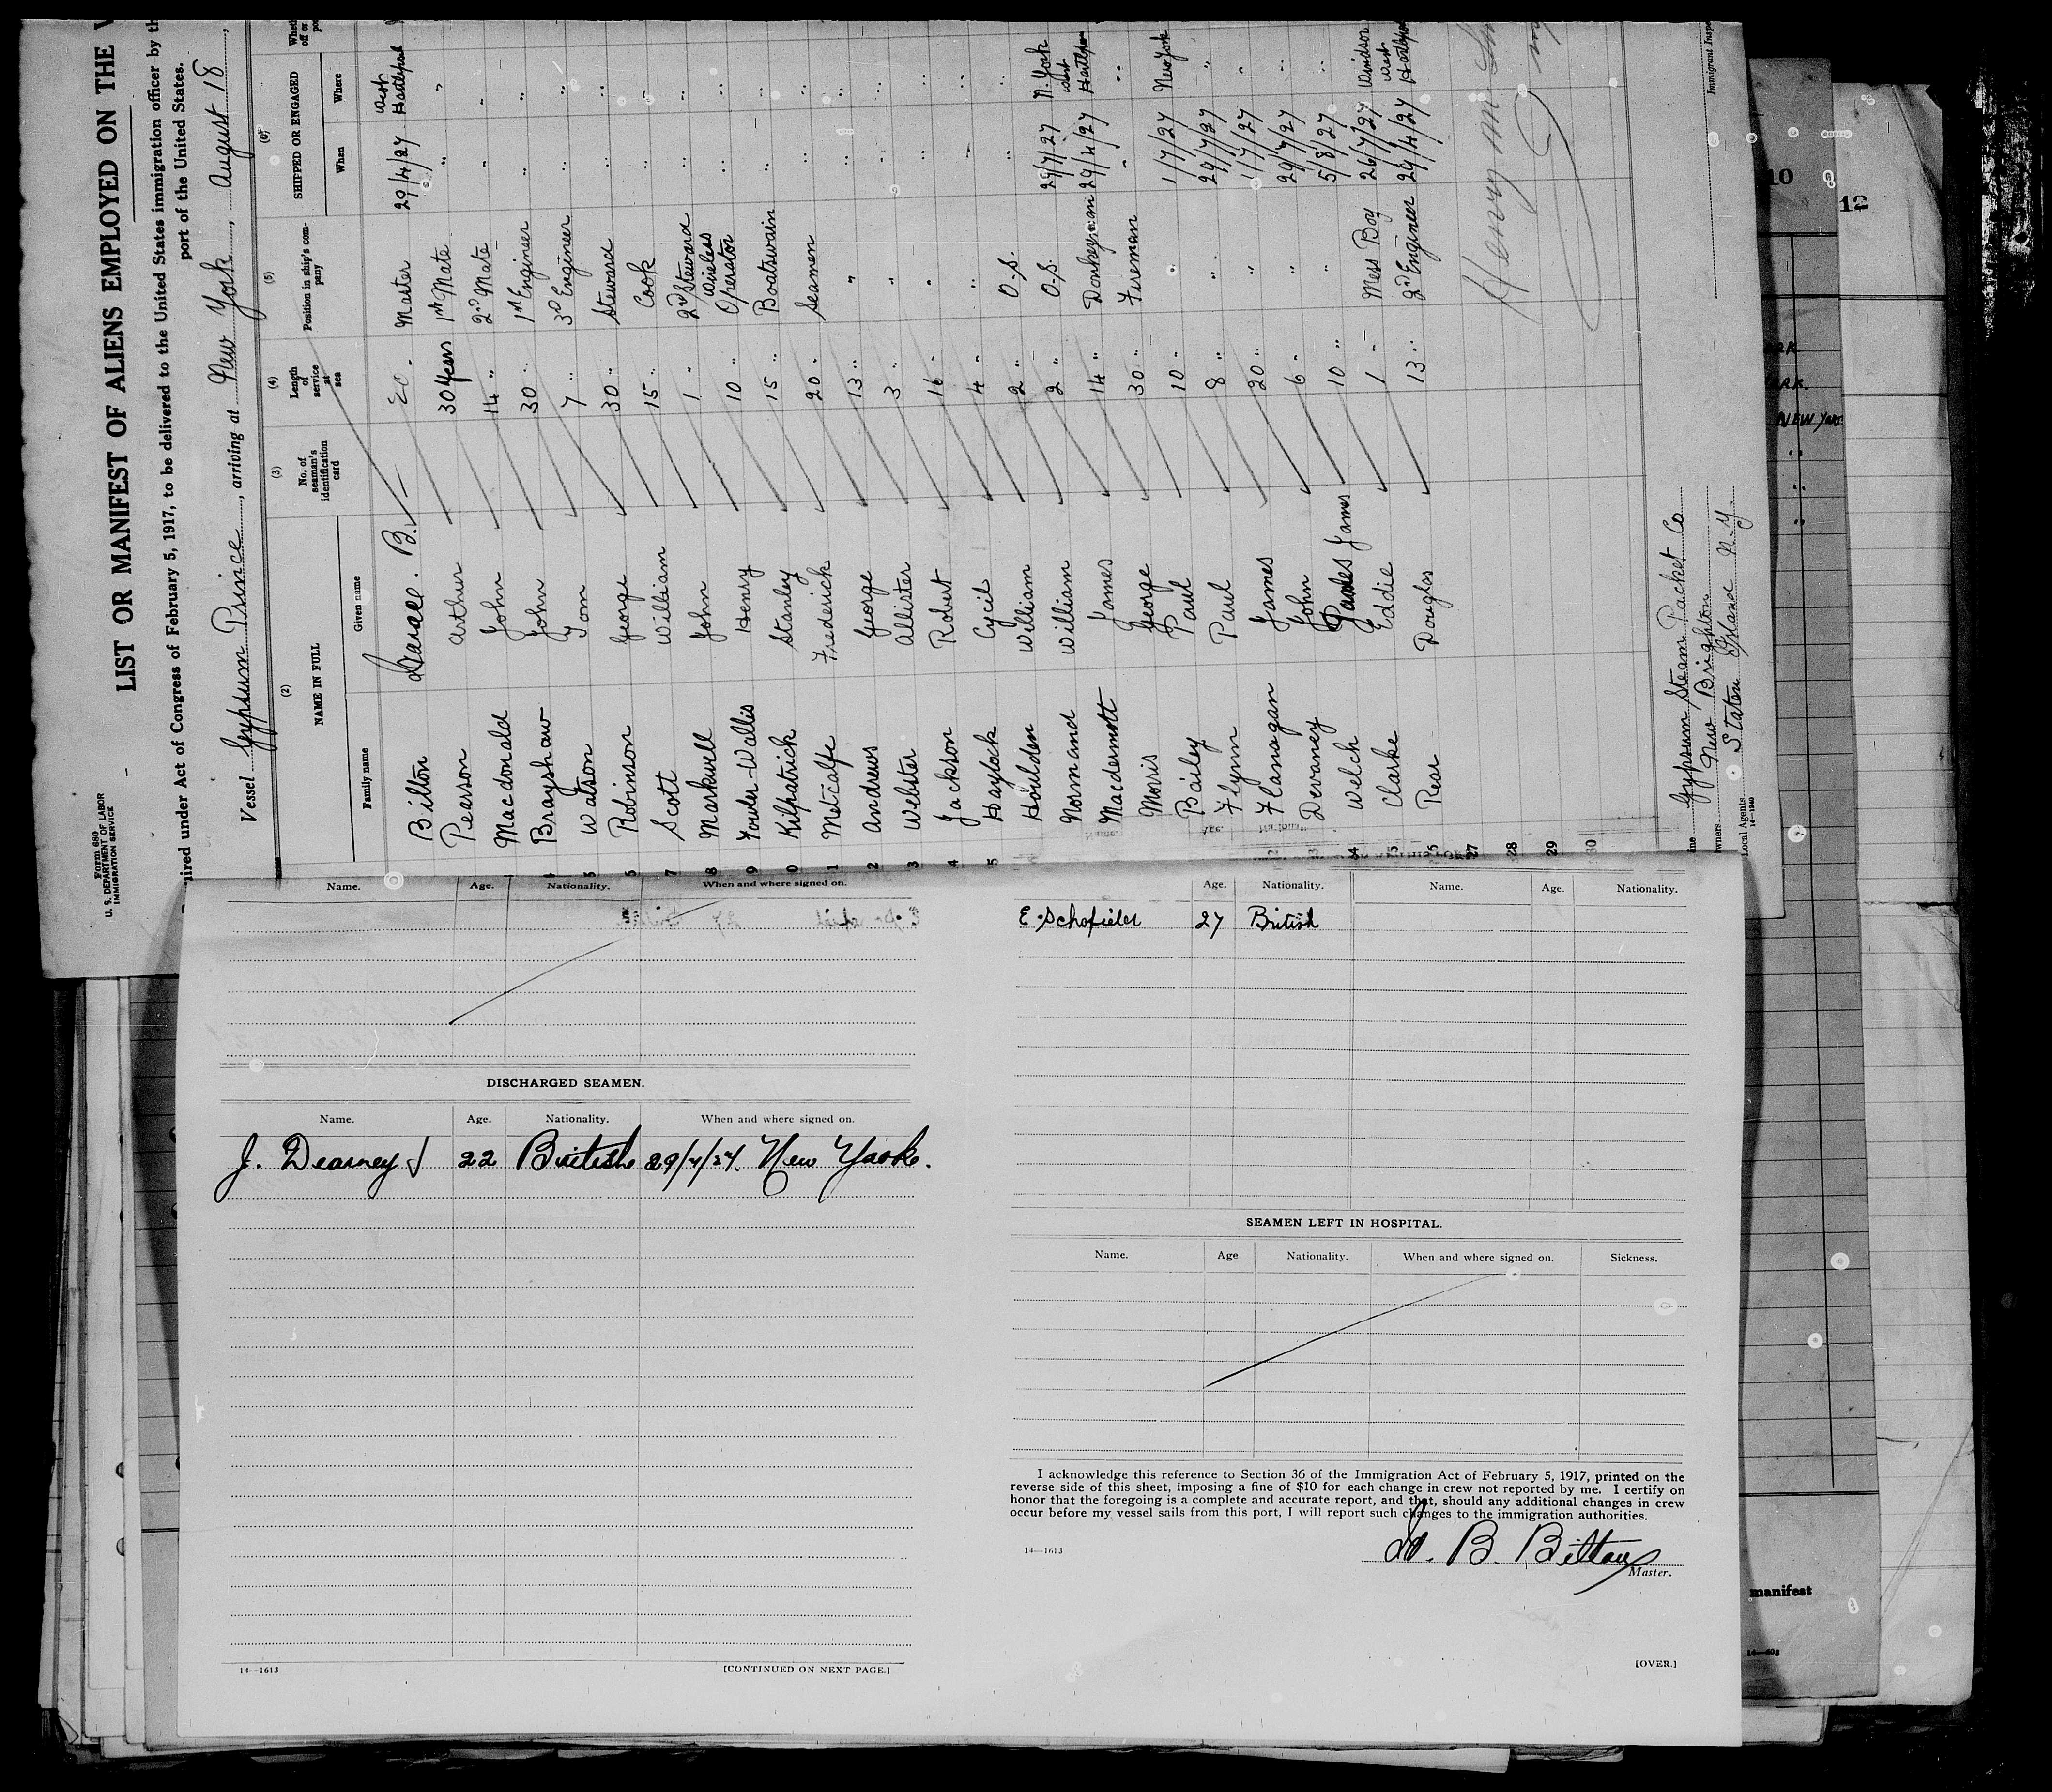 Form 680
U. S. DEPARTMENT OF LABOR
IMMIGRATION SERVICE
LIST OR MANIFEST OF ALIENS EMPLOYED ON THE
ired under Act of Congress of February 5, 1917, to be delivered to the United States immigration officer by th
port of the United States.
Vessel Gypsum Prince, arriving at New York, August 18,
(2) (3) (4) (5) (6)
NAME IN FULL No. of seaman's identification card Length of service at sea Position in ship's company SHIPPED OR ENGAGED
Family name Given name When Where
Bilton B. Master 29/4/27 West Hartlepool
Pearson Arthur 30 years 1st Mate " "
Macdonald John 14 " 2nd Mate " "
Brayshaw John 30 " 1st Engineer " "
Watson Tom 7 " 3rd Engineer " "
Robinson George 30 " Steward " "
Scott William 15 " Cook " "
Markwell John 1 " 2nd Steward " "
Fowler-Wallis Henry 10 " Wireless Operator " "
Kilpatrick Stanley 15 " Boatswain " "
Metcalfe Frederick 20 " Seamen " "
Andrews George 13 " " " "
Webster Allister 3 " " " "
Jackson Robert 16 " " " "
Haylock Cycil 4 " " " "
Houlden William 2 " O.S. " "
Normand William 2 " O.S. 29/7/27 N. York
Macdermott James 14 " Donkeyman 29/4/27 West Hartlepool
Morris George 30 " Fireman " "
Bailey Paul 10 " " 1/7/27 New York
Flynn Paul 8 " " 29/7/27 "
Flanagan James 20 " " 1/7/27 "
Dervaney John 6 " " 29/7/27 "
Welch James 10 " " 5/8/27 "
Clarke Eddie 1 " Mess Boy 26/7/27 Windsor
Rear Douglas 13 " 2nd Engineer 29/4/27 West Hartlepool
27
28
29
30
Henry
Gypsum Steam Packet Co
New Brighton
Local Agents Staten Island N.Y
14-1240
Immigrant Inspe
Name. Age. Nationality. When and where signed on.
DISCHARGED SEAMEN.
Name. Age. Nationality. When and where signed on.
J. Dearney 22 British 29/7/27. New York.
14—1613 [CONTINUED ON NEXT PAGE.]
Age. Nationality. Name. Age. Nationality.
E. Schofield 27 British
SEAMEN LEFT IN HOSPITAL.
Name. Age Nationality. When and where signed on. Sickness.
I acknowledge this reference to Section 36 of the Immigration Act of February 5, 1917, printed on the
reverse side of this sheet, imposing a fine of $10 for each change in crew not reported by me. I certify on
honor that the foregoing is a complete and accurate report, and that, should any additional changes in crew
occur before my vessel sails from this port, I will report such changes to the immigration authorities.
14—1613
B. Bilton
Master.
[OVER.]
10
12
NEW York
manifest